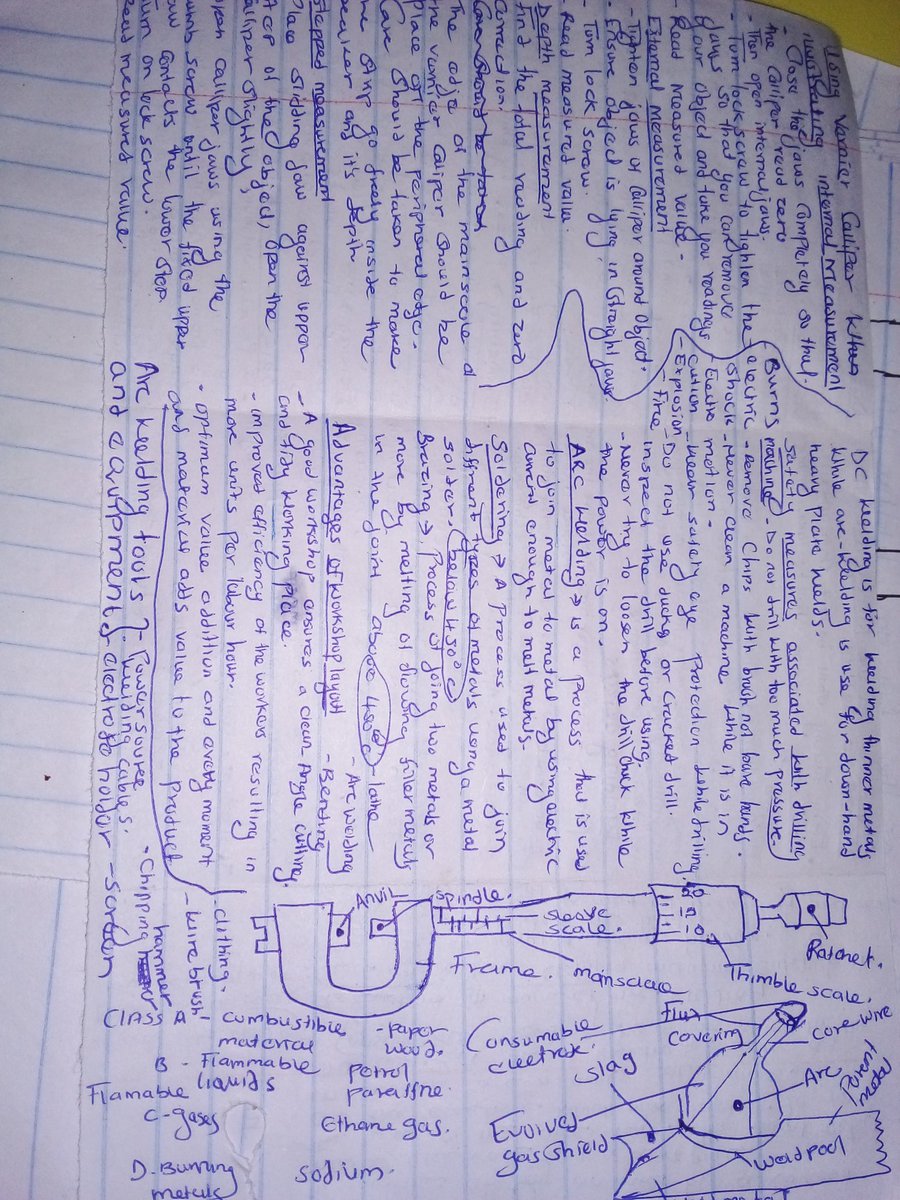 Using Vernier Calliper When
illustrating internal measurement
- Close the jaws completely so that
the calliper read zero
- Then open internal jaws.
- Turn lock screw to tighten the
jaws so that you can remove
your object and take you readings
- Read measured value.
External measurement
- Tighten jaws of calliper around object.
- Ensure object is lying in straight jaws.
- Turn lock screw.
- Read measured value.
Depth measurement
find the total reading and zero
correction
The edge of the mainscale of
the vernier caliper should be
place off the peripheral edge.
Care should be taken to make
strip go freely inside the
and it's depth
Stepped measurement
Place slidding jaw against upper
step of the object, open the
calliper slightly,
open calliper jaws using the
thumb screw until the fixed upper
jaw contacts the lower step
Turn on lock screw.
Read measured value.
DC welding is for welding thinner metals
while arc-welding is use for down-hand
heavy plate welds.
Safety measures associated with drilling
machine - Do not drill with too much pressure.
- Remove chips with brush not bare hands.
- Never clean a machine while it is in
motion.
- Wear safety eye protection while drilling
- Do not use or cracked drill.
inspect the drill before using.
- Never try to loosen the drill chuck while
the power is on.
Burns
electric
shock
Electro
cution
- Explosion
- Fire
ARC welding → is a process that is used
to join metal to metal by using electric
current enough to melt metals.
Soldering → A process used to join
different types of metals using a metal
solder. below 450°c
Brazing → Process of going two metals or
more by melting of flowing filler metals
in the joint above 450°c
- lathe
- Arc welding
- Bending
Angle cutting.
Advantages of workshop layout
- A good workshop ensures a clean
and tidy working place.
- improved efficiency of the workers resulting in
more units per labour hour.
- optimum value addition and every moment
and material adds value to the product
Arc welding tools
and equipment
- Power source
- welding cables.
- electrode holder
- screen
- Chipping
hammer
- wire brush
- clothing.
Anvil
spindle.
sleeve
scale.
Frame.
Thimble scale.
Ratchet.
CLASS A - combustible
material
- paper
wood.
B - Flammable
liquids
petrol
paraffine.
Flamable
C - gases
Ethane gas.
D. Burning
metals
sodium.
Consumable
Flux
covering
core wire
slag
Arc
Parent
metal
Evolved
gas shield
weld pool